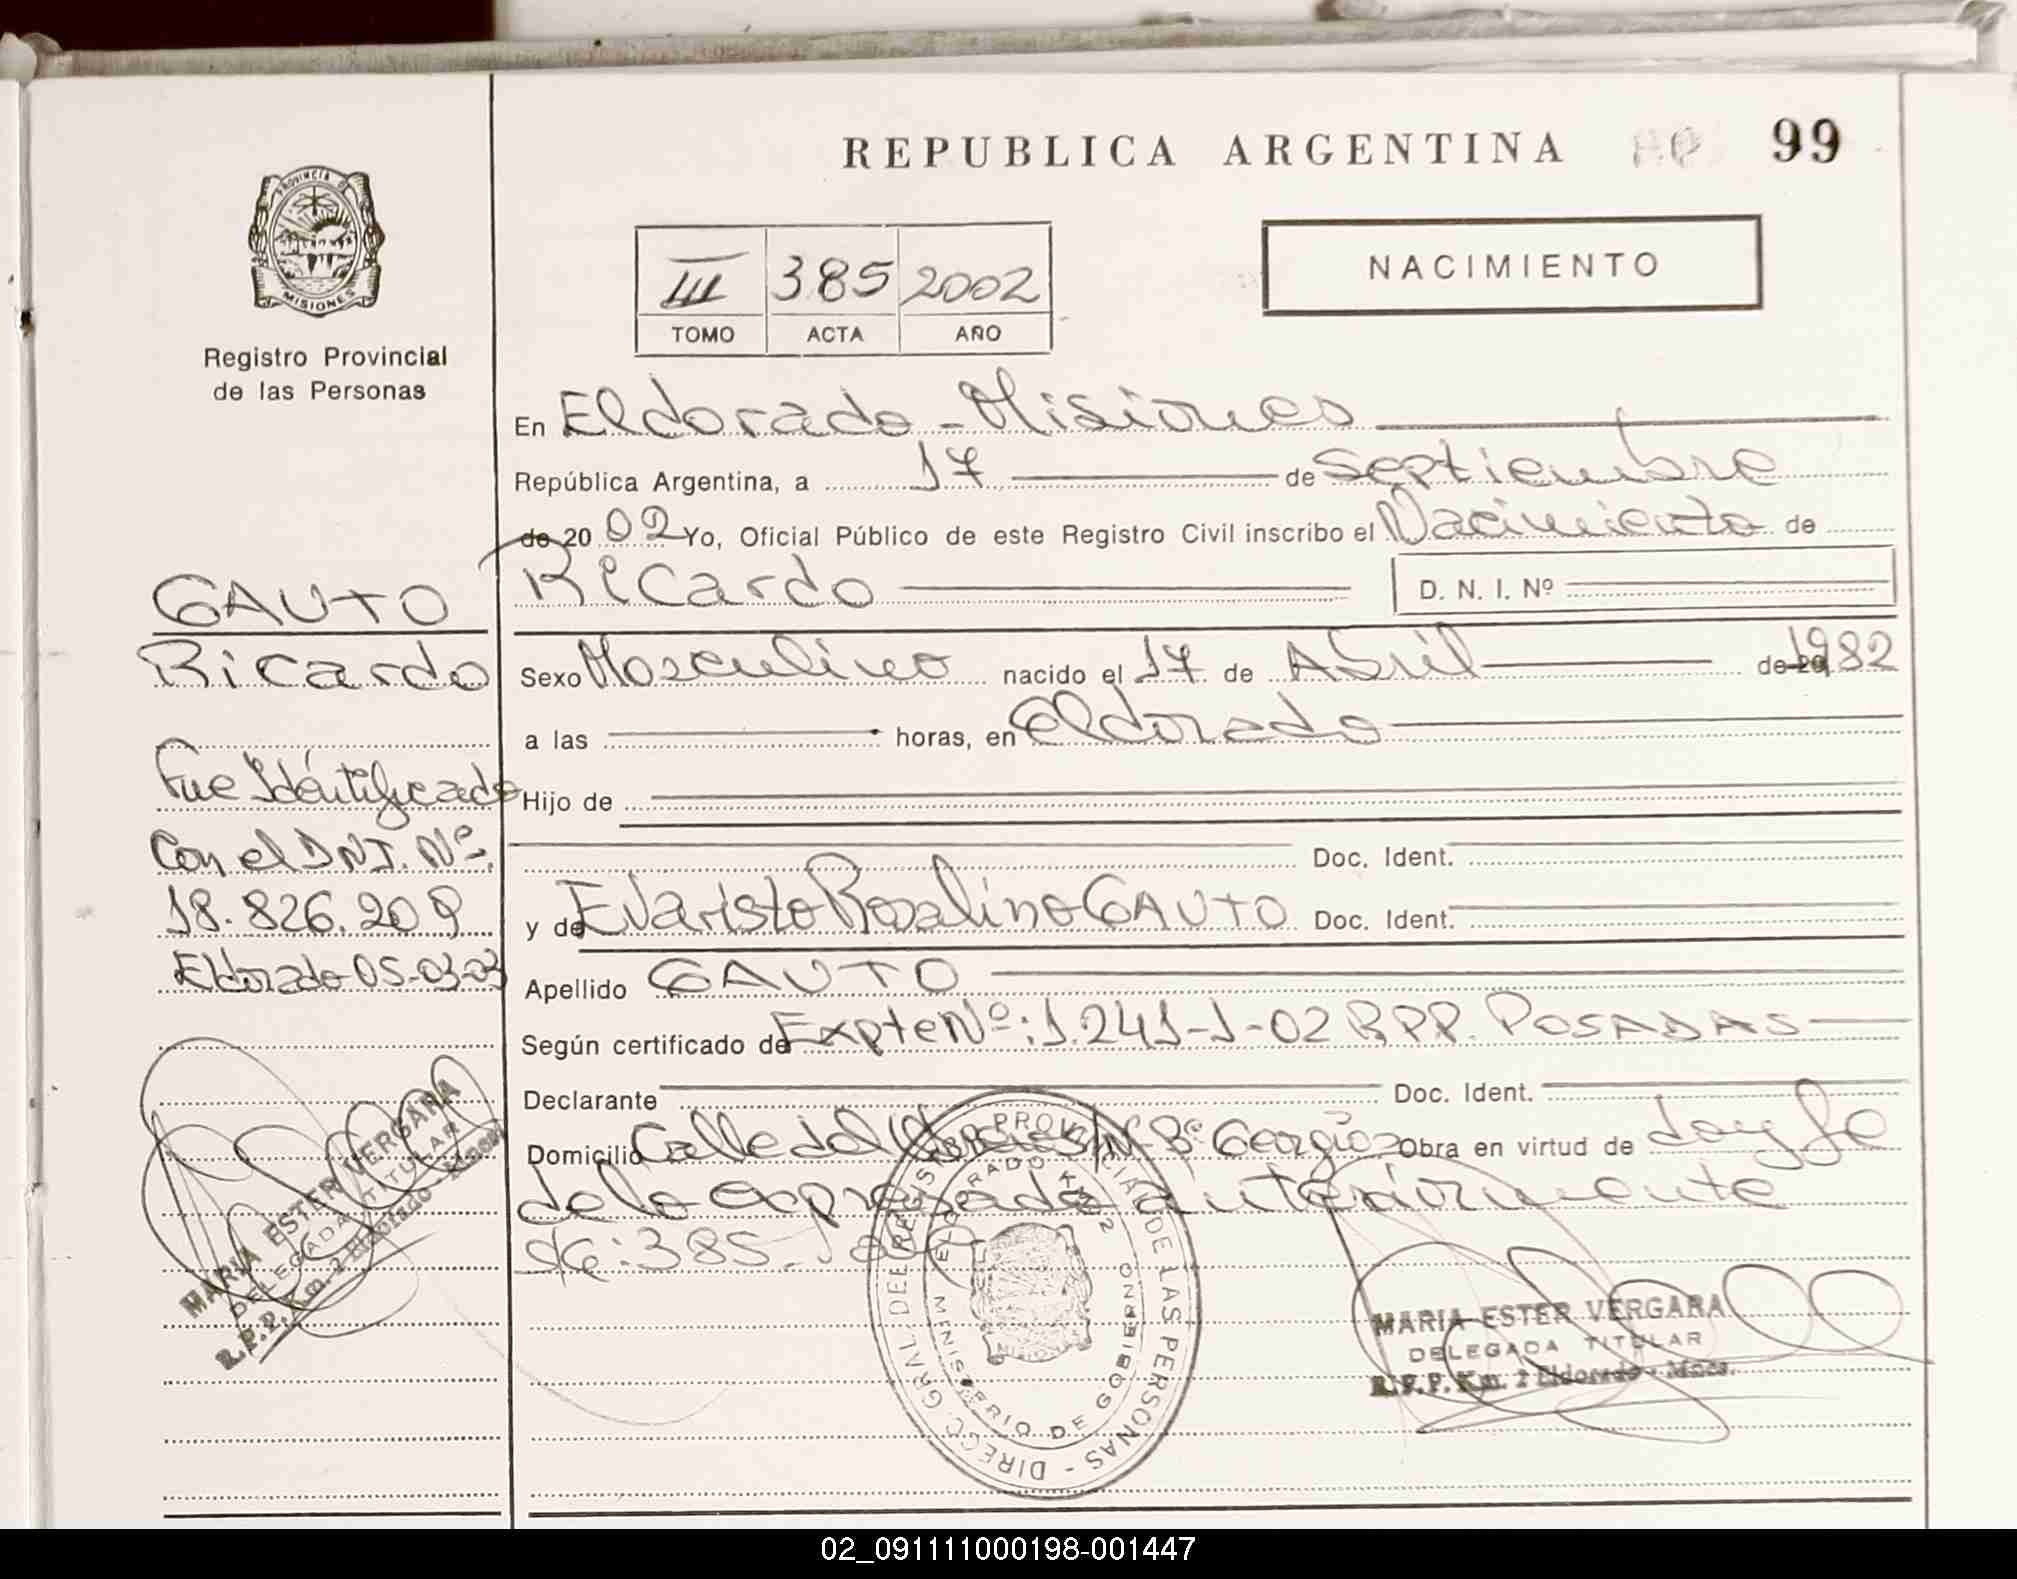 REPUBLICA ARGENTINA
99
PROVINCIA DE
MISIONES
Registro Provincial
de las Personas
III 385 2002
TOMO ACTA AÑO
NACIMIENTO
En Eldorado - Misiones
República Argentina, a 17 de Septiembre
de 20 02 Yo, Oficial Público de este Registro Civil inscribo el Nacimiento de
Ricardo D. N. I. Nº
Sexo Masculino nacido el 17 de Abril de 20 1982
a las horas, en Eldorado
Hijo de
Doc. Ident.
y de Evaristo Rosalino GAUTO Doc. Ident.
Apellido GAUTO
Según certificado de Expte Nº: 1.241-1-02 R.P.P. POSADAS
Declarante Doc. Ident.
Domicilio Calle del Bº Obra en virtud de doy fe
de lo expresado anteriormente
385
GAUTO
Ricardo
Fue Identificado
Con el DNI. Nº.
18.826.209
Eldorado 05-03-03
MARIA ESTER VERGARA
DELEGADA TITULAR
R.P.P. Km. 2 Eldorado - Mnes.
DIRECC. GRAL. DE REGISTRO PROVINCIAL DE LAS PERSONAS -
ELDORADO KM 2
MINISTERIO DE GOBIERNO
MARIA ESTER VERGARA
DELEGADA TITULAR
R.P.P. Km. 2 Eldorado - Mnes.
02_091111000198-001447